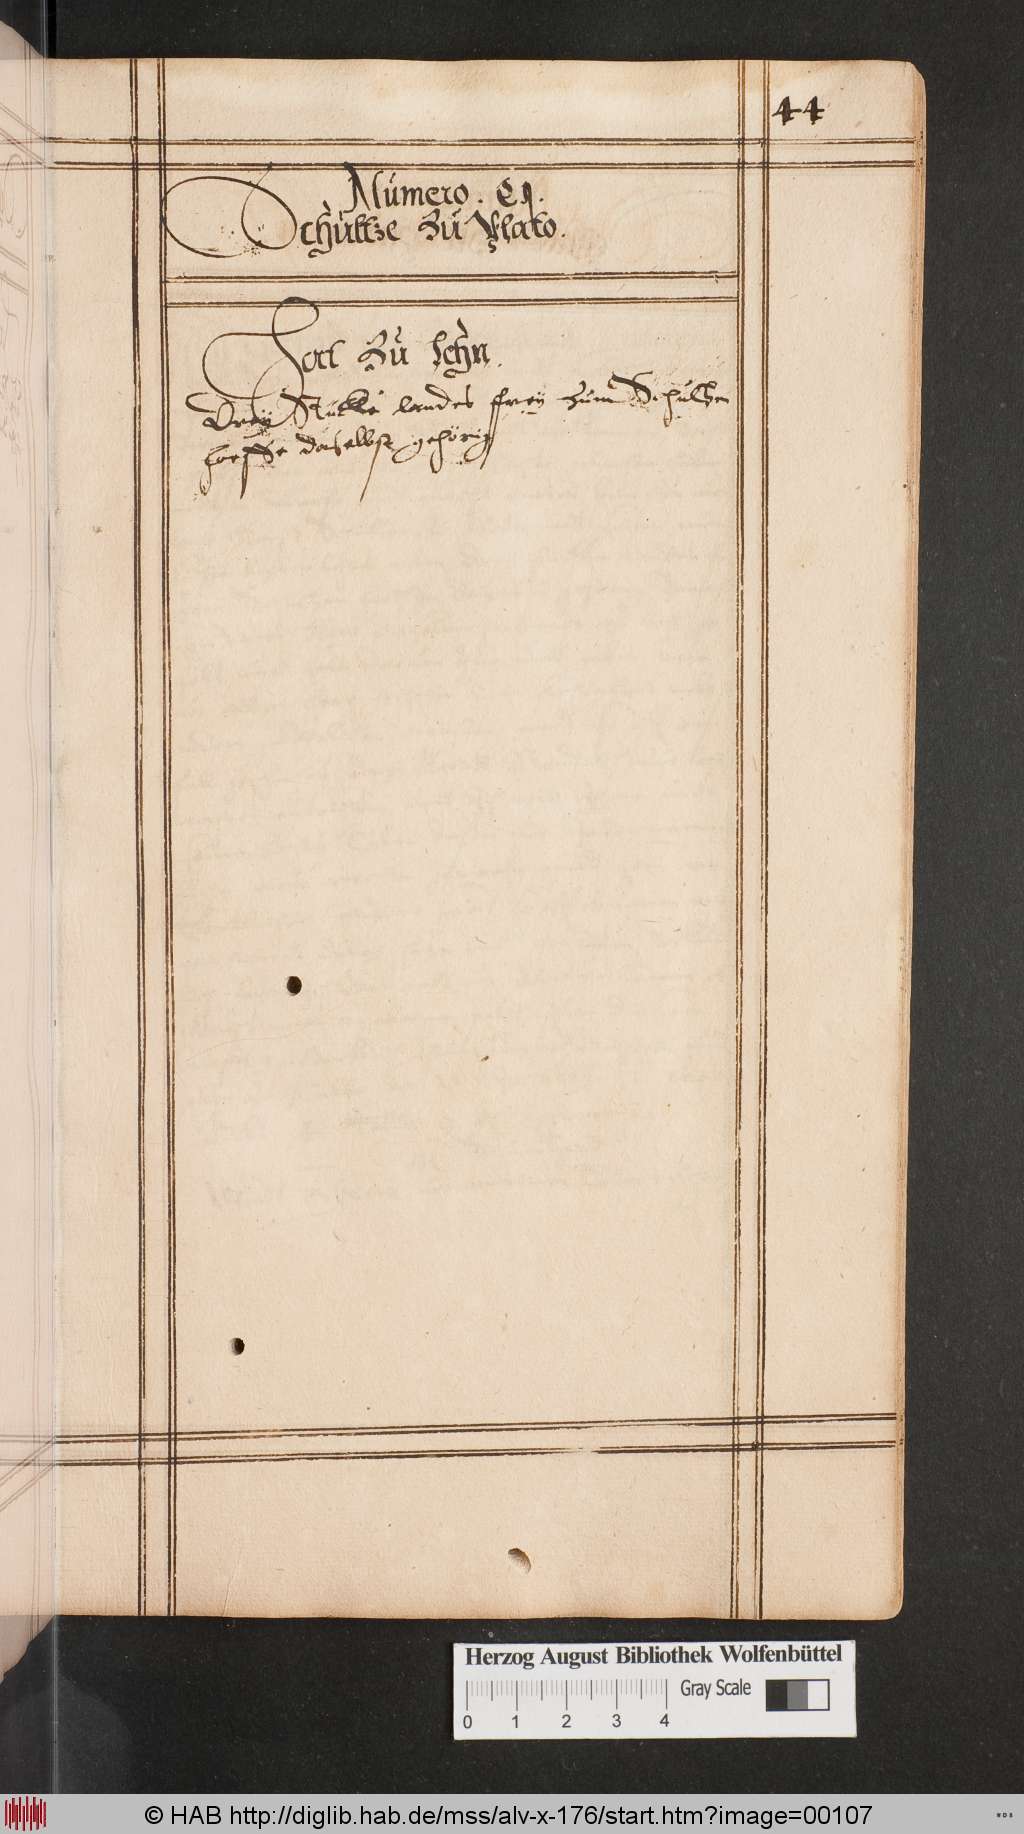 44
Numero. CI.
Schultze Zu Plato.
Hat Zu Lehn.
Drey Stukke landes frey zum Schultzen
hoeffe daselbst gehörig
Herzog August Bibliothek Wolfenbüttel
Gray Scale
0 1 2 3 4
© HAB http://diglib.hab.de/mss/alv-x-176/start.htm?image=00107